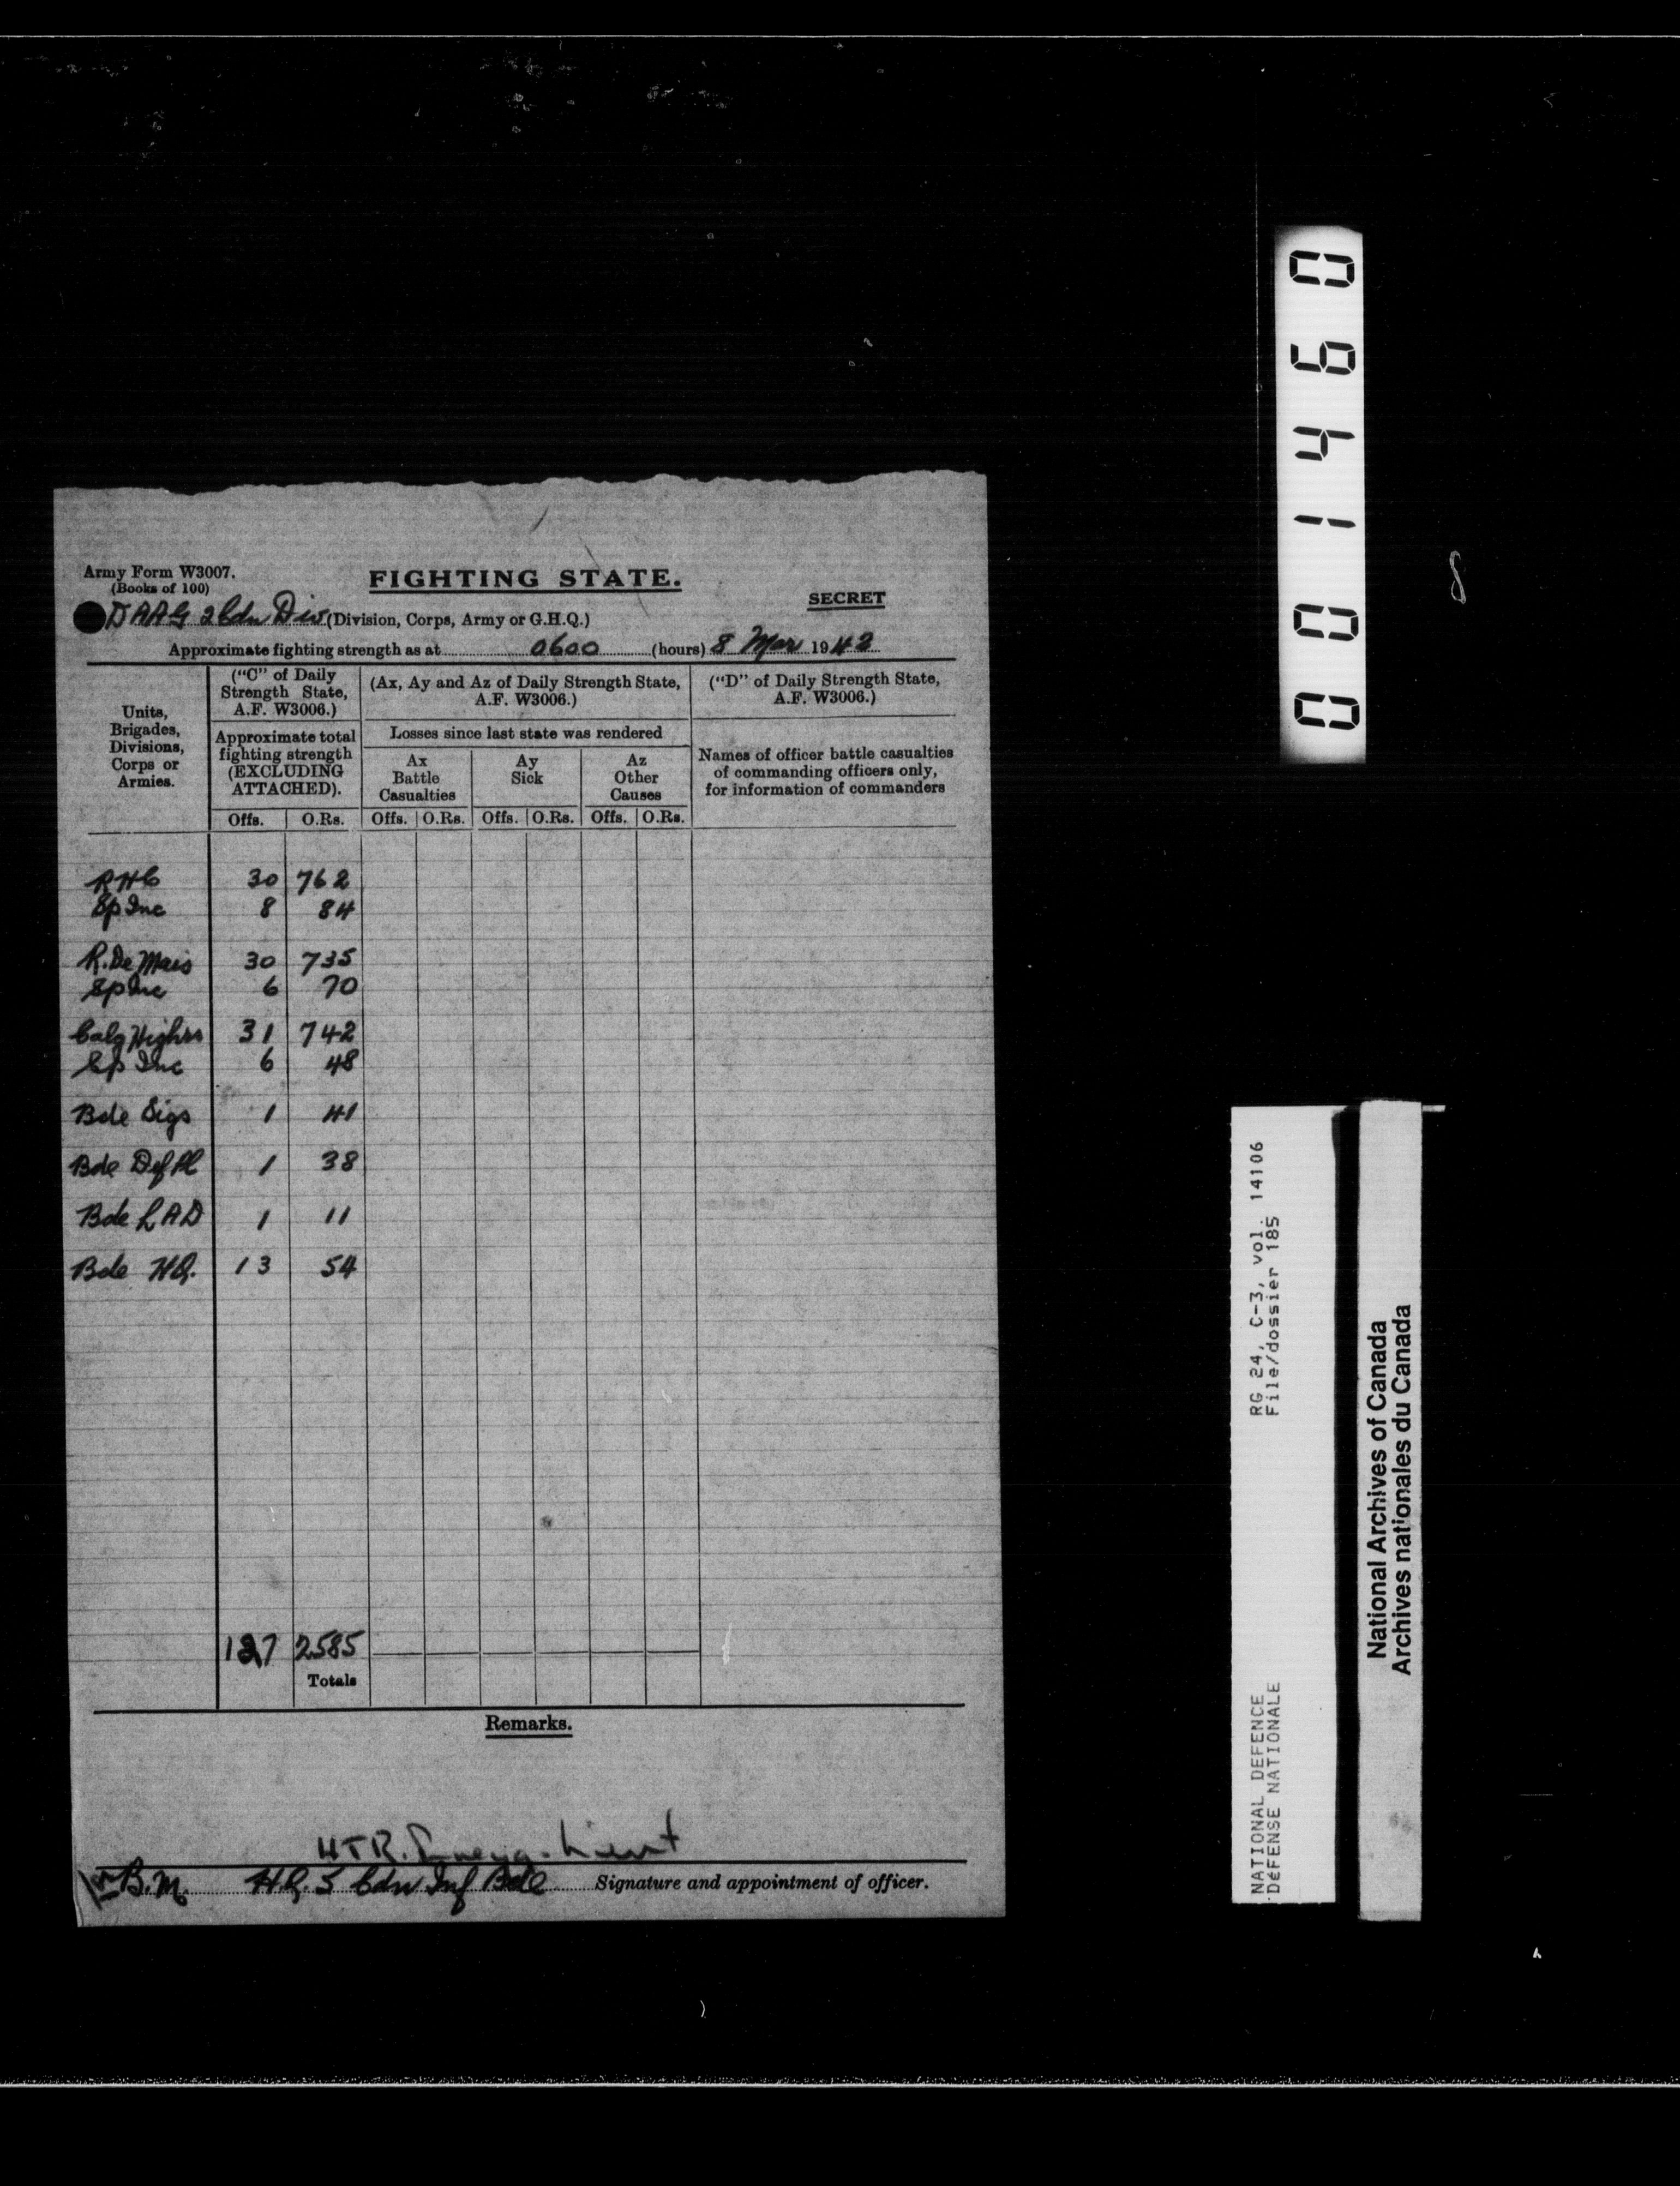 Army Form W3007.
(Books of 100)
FIGHTING STATE.
SECRET
DAAG 2 Cdn Div (Division, Corps, Army or G.H.Q.)
Approximate fighting strength as at 0600 (hours) 8 Mar 1942
Units, Brigades, Divisions, Corps or Armies.
("C" of Daily Strength State, A.F. W3006.)
Approximate total fighting strength (EXCLUDING ATTACHED).
(Ax, Ay and Az of Daily Strength State, A.F. W3006.)
Losses since last state was rendered
Ax Battle Casualties
Ay Sick
Az Other Causes
("D" of Daily Strength State, A.F. W3006.)
Names of officer battle casualties of commanding officers only, for information of commanders
Offs. O.Rs. Offs. O.Rs. Offs. O.Rs. Offs. O.Rs.
RHC 30 762
Sp Inc 8 84
R. De Mais 30 735
Sp Inc 6 70
Calg Highrs 31 742
Sp Inc 6 48
Bde Sigs 1 41
Bde Def Pl 1 38
Bde LAD 1 11
Bde HQ. 13 54
127 2585
Totals
Remarks.
Lieut
for B.M. H.Q. 5 Cdn Inf Bde Signature and appointment of officer.
001460
8
RG 24, C-3, vol. 14106
File/dossier 185
NATIONAL DEFENCE
DÉFENSE NATIONALE
National Archives of Canada
Archives nationales du Canada